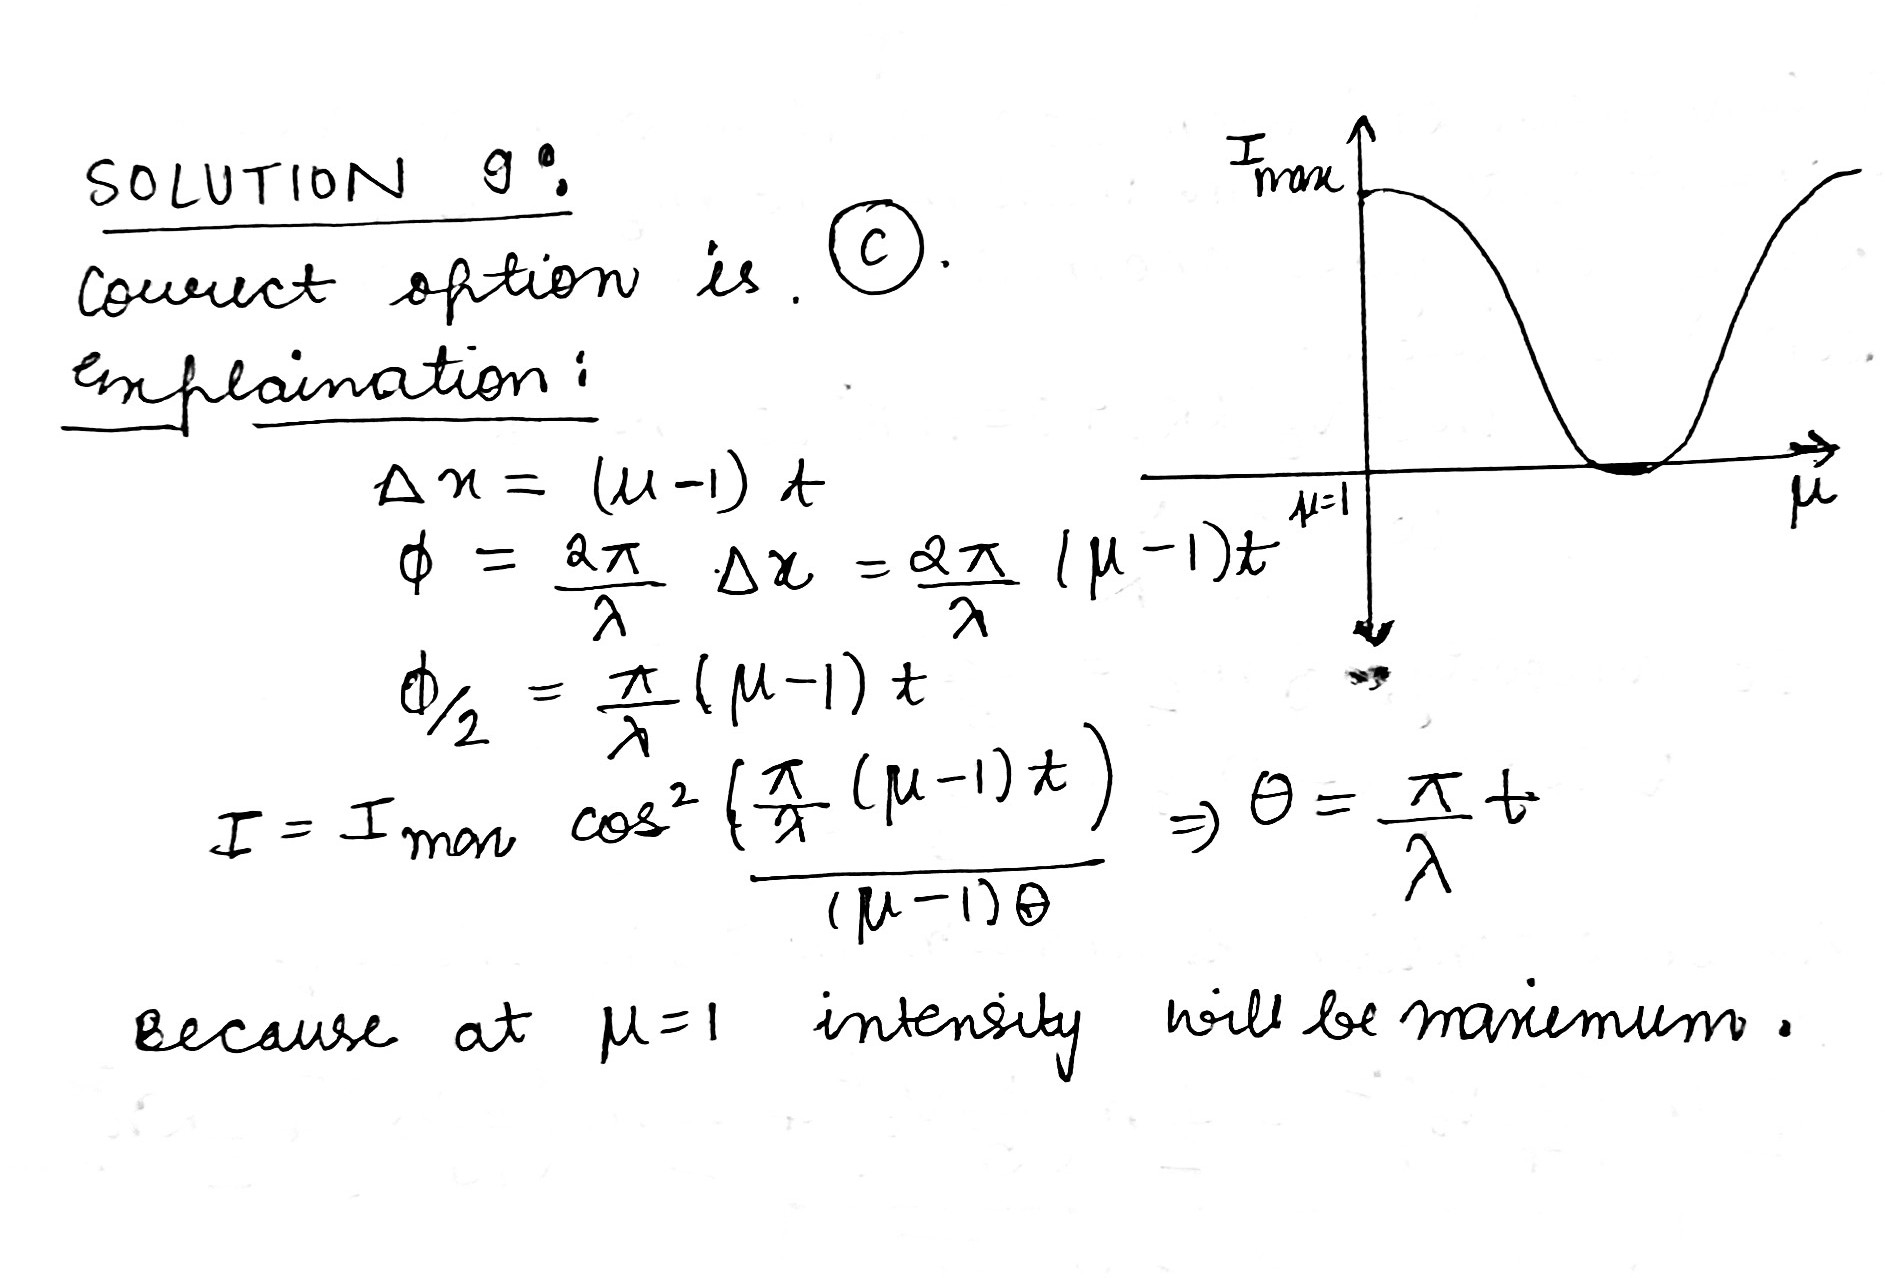 SOLUTION 9:
Correct option is. (C).
Explaination:
Δx = (μ-1) t
φ = 2π/λ Δx = 2π/λ (μ-1)t
φ/2 = π/λ (μ-1) t
I = I max cos² (π/λ (μ-1) t) ⇒ θ = π/λ t
(μ-1)θ
Because at μ=1 intensity will be maximum.
I max
μ=1
μ